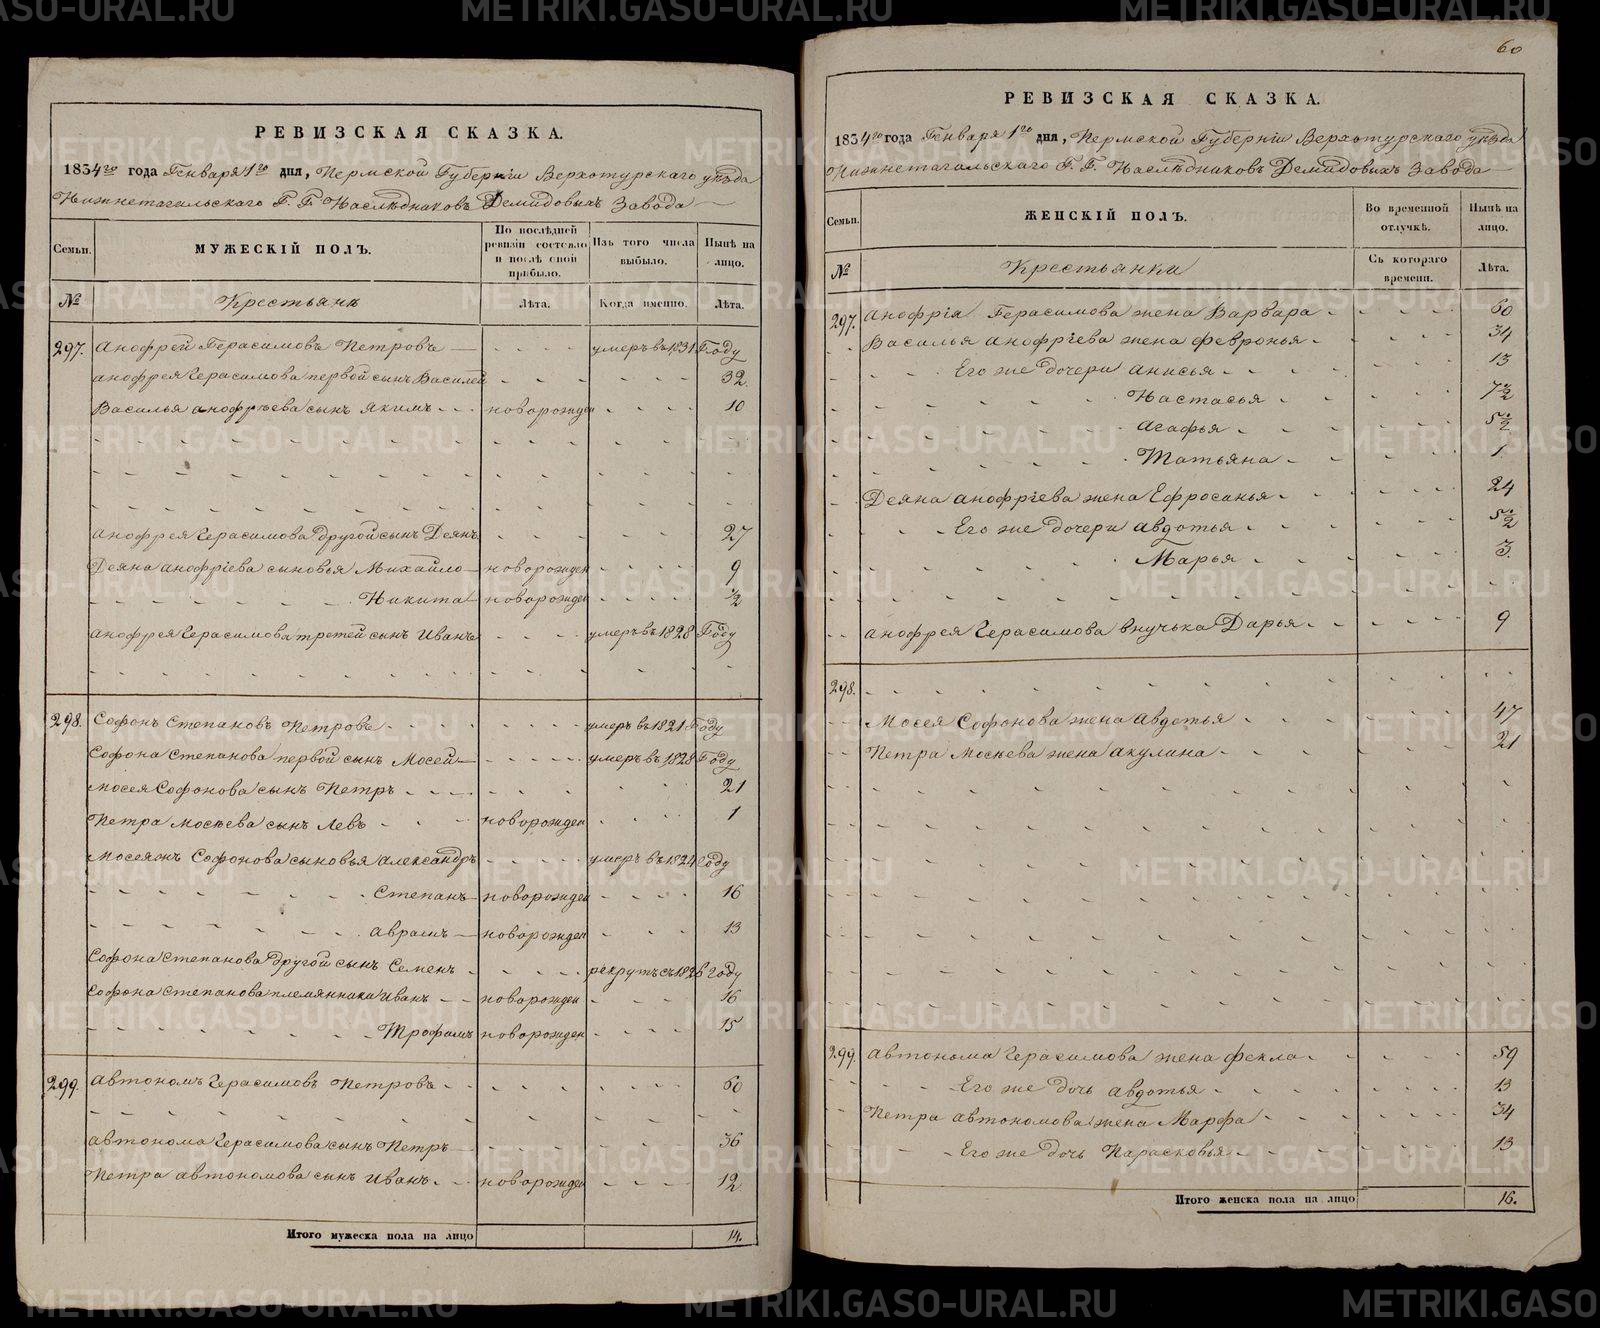 РЕВИЗСКАЯ СКАЗКА.
1834го года Генваря 1го дня, Пермской Губерніи Верхотурскаго уѣзда
Нижнетагильскаго Г. Г. Наслѣдниковъ Демидовыхъ Завода
Семьи. МУЖЕСКІЙ ПОЛЪ. По послѣдней ревизіи состояло и послѣ оной прибыло. Изъ того числа выбыло. Нынѣ на лицо.
№ Крестьянъ Лѣта. Когда именно. Лѣта.
297. Анофрей Герасимовъ Петровъ умеръ въ 1831 Году
Анофрея Герасимова первой сынъ Василей 32
Василья Анофрѣева сынъ Якимъ новорожден 10
Анофрея Герасимова другой сынъ Деянъ 27
Деяна Анофріева сыновья Михайло новорожден 9
Никита новорожден 1/2
Анофрея Герасимова третей сынъ Иванъ умеръ въ 1828 Году
298. Софонъ Степановъ Петровъ умеръ въ 1821 Году
Софона Степанова первой сынъ Мосей умеръ въ 1828 Году
Мосея Софонова сынъ Петръ 21
Петра Мосѣева сынъ Левъ новорожден 1
Мосея жъ Софонова сыновья Александръ умеръ въ 1824 Году
Степанъ новорожден 16
Аврамъ новорожден 13
Софона Степанова другой сынъ Семенъ рекрутъ съ 1826 Году
Софона Степанова племянники Иванъ новорожден 16
Трофимъ новорожден 15
299. Автономъ Герасимовъ Петровъ 60
Автонома Герасимова сынъ Петръ 36
Петра Автономова сынъ Иванъ новорожден 12
Итого мужеска пола на лицо 14.
60
РЕВИЗСКАЯ СКАЗКА.
1834го года Генваря 1го дня, Пермской Губерніи Верхотурскаго уѣзда
Нижнетагильскаго Г. Г. Наслѣдниковъ Демидовыхъ Завода
Семьи. ЖЕНСКІЙ ПОЛЪ. Во временной отлучкѣ. Нынѣ на лицо.
№ Крестьянки Съ котораго времени. Лѣта.
297. Анофрія Герасимова жена Варвара 60
Василья Анофріева жена Февронья 34
Его же дочери Анисья 13
Настасья 7 1/2
Агафья 5 1/2
Татьяна 1
Деяна Анофріева жена Ефросинья 24
Его же дочери Авдотья 5 1/2
Марья 3
Анофрея Герасимова внучька Дарья 9
298.
Мосея Софонова жена Авдотья 47
Петра Мосѣева жена Акулина 21
299. Автонома Герасимова жена Фекла 59
Его же дочь Авдотья 13
Петра Автономова жена Марфа 34
Его же дочь Парасковья 13
Итого женска пола на лицо 16.
METRIKI.GASO-URAL.RU